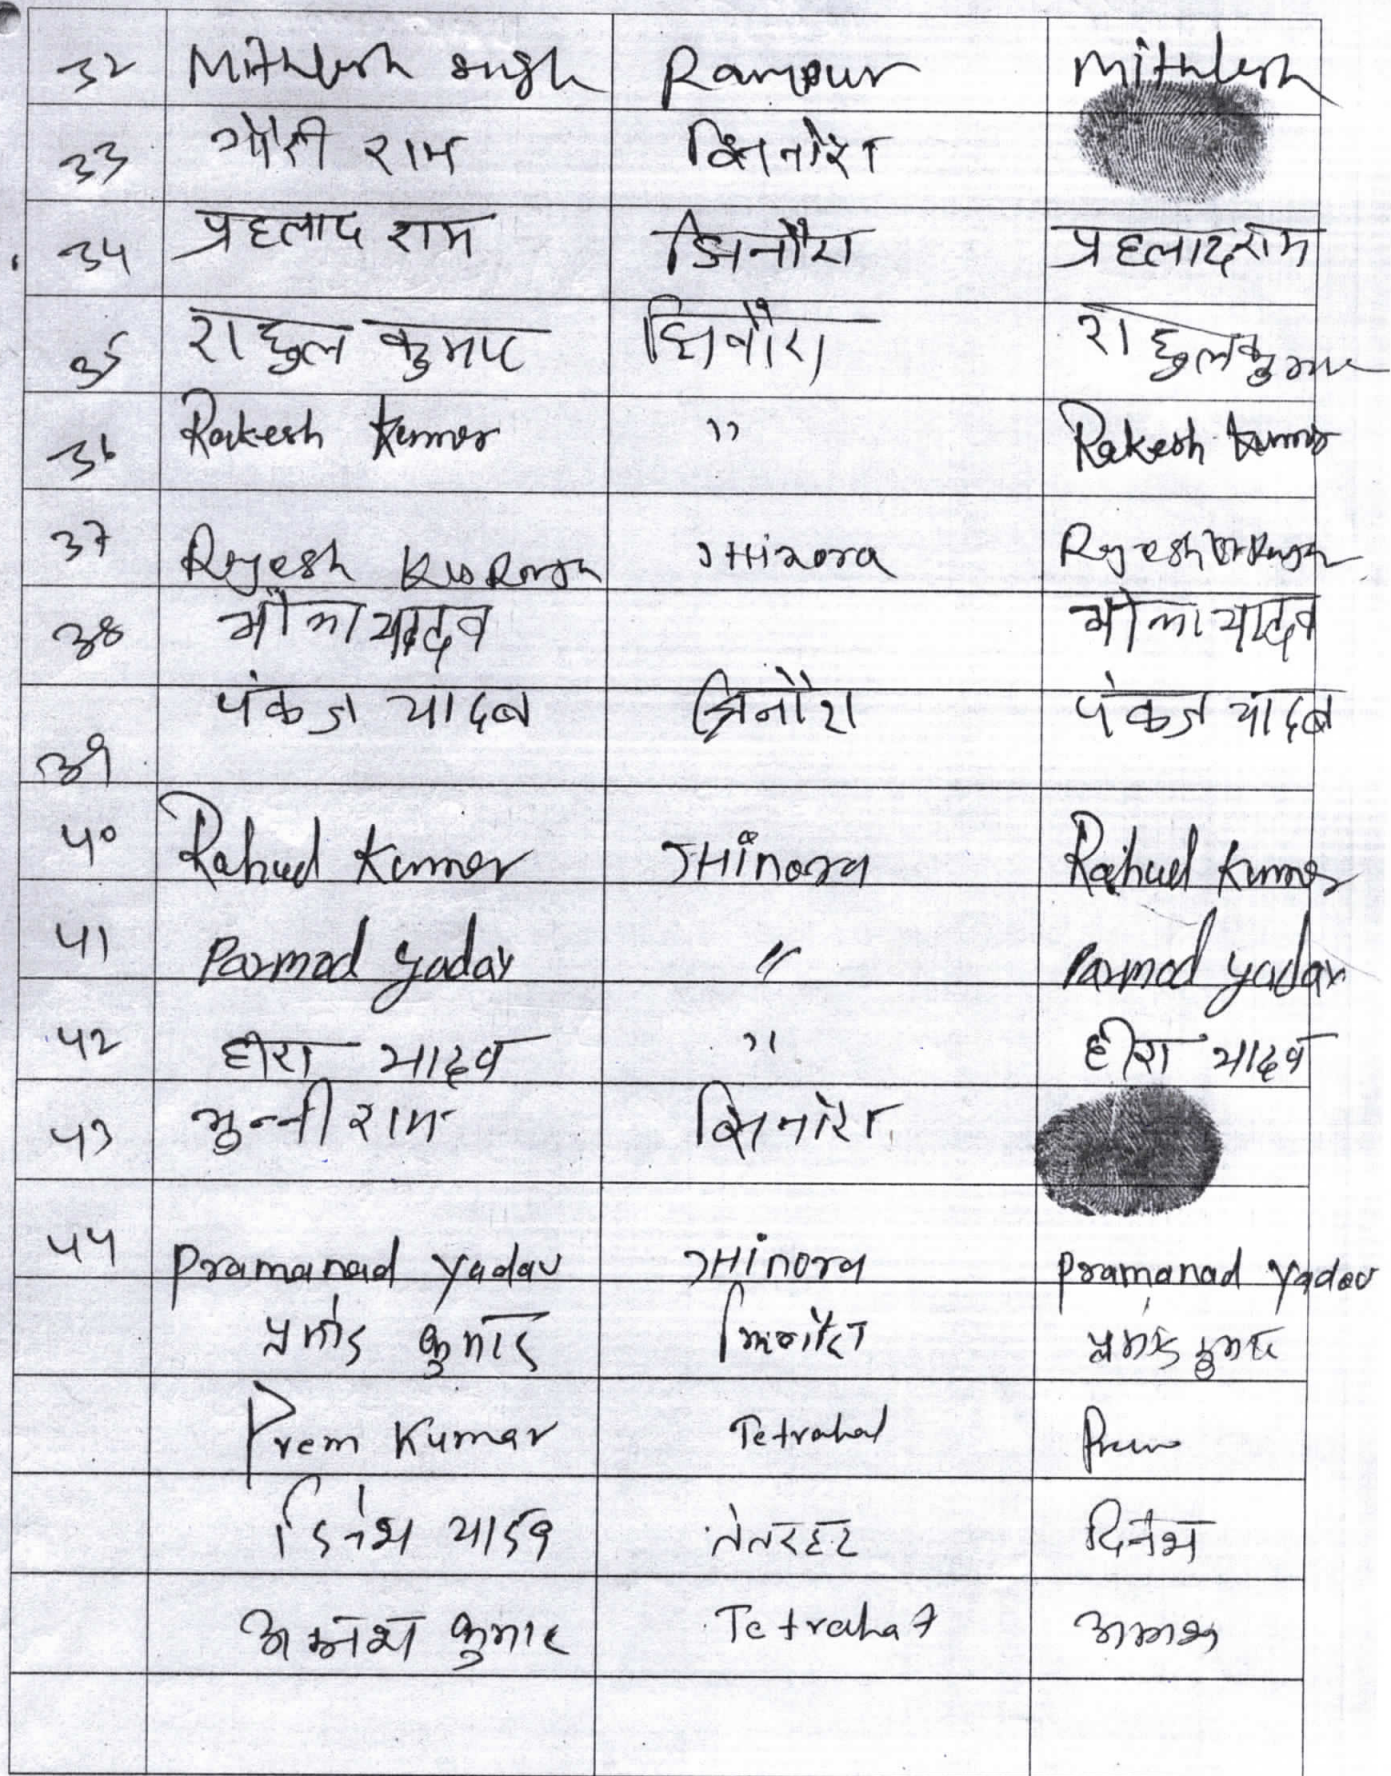 32 Mithlesh singh Rampur Mithlesh
33 गौरी राम झिनोरा
34 प्रहलाद राम झिनौरा प्रहलाद राम
35 राहुल कुमार झिनौरा राहुल कुमार
36 Rakesh Kumar " Rakesh Kumar
37 Rajesh JHinora Rajesh
38 यादव यादव
39 पंकज यादव झिनौरा पंकज यादव
40 Rahul Kumar JHinora Rahul Kumar
41 Parmod yadav " Parmod yadav
42 हीरा यादव " हीरा यादव
43 मुन्नी राम झिनोरा
44 Pramanad Yadav JHinora Pramanad Yadav
कुमार
Prem Kumar Tetrahat Prem
दिनेश यादव तेतरहट दिनेश
कुमार Tetrahat